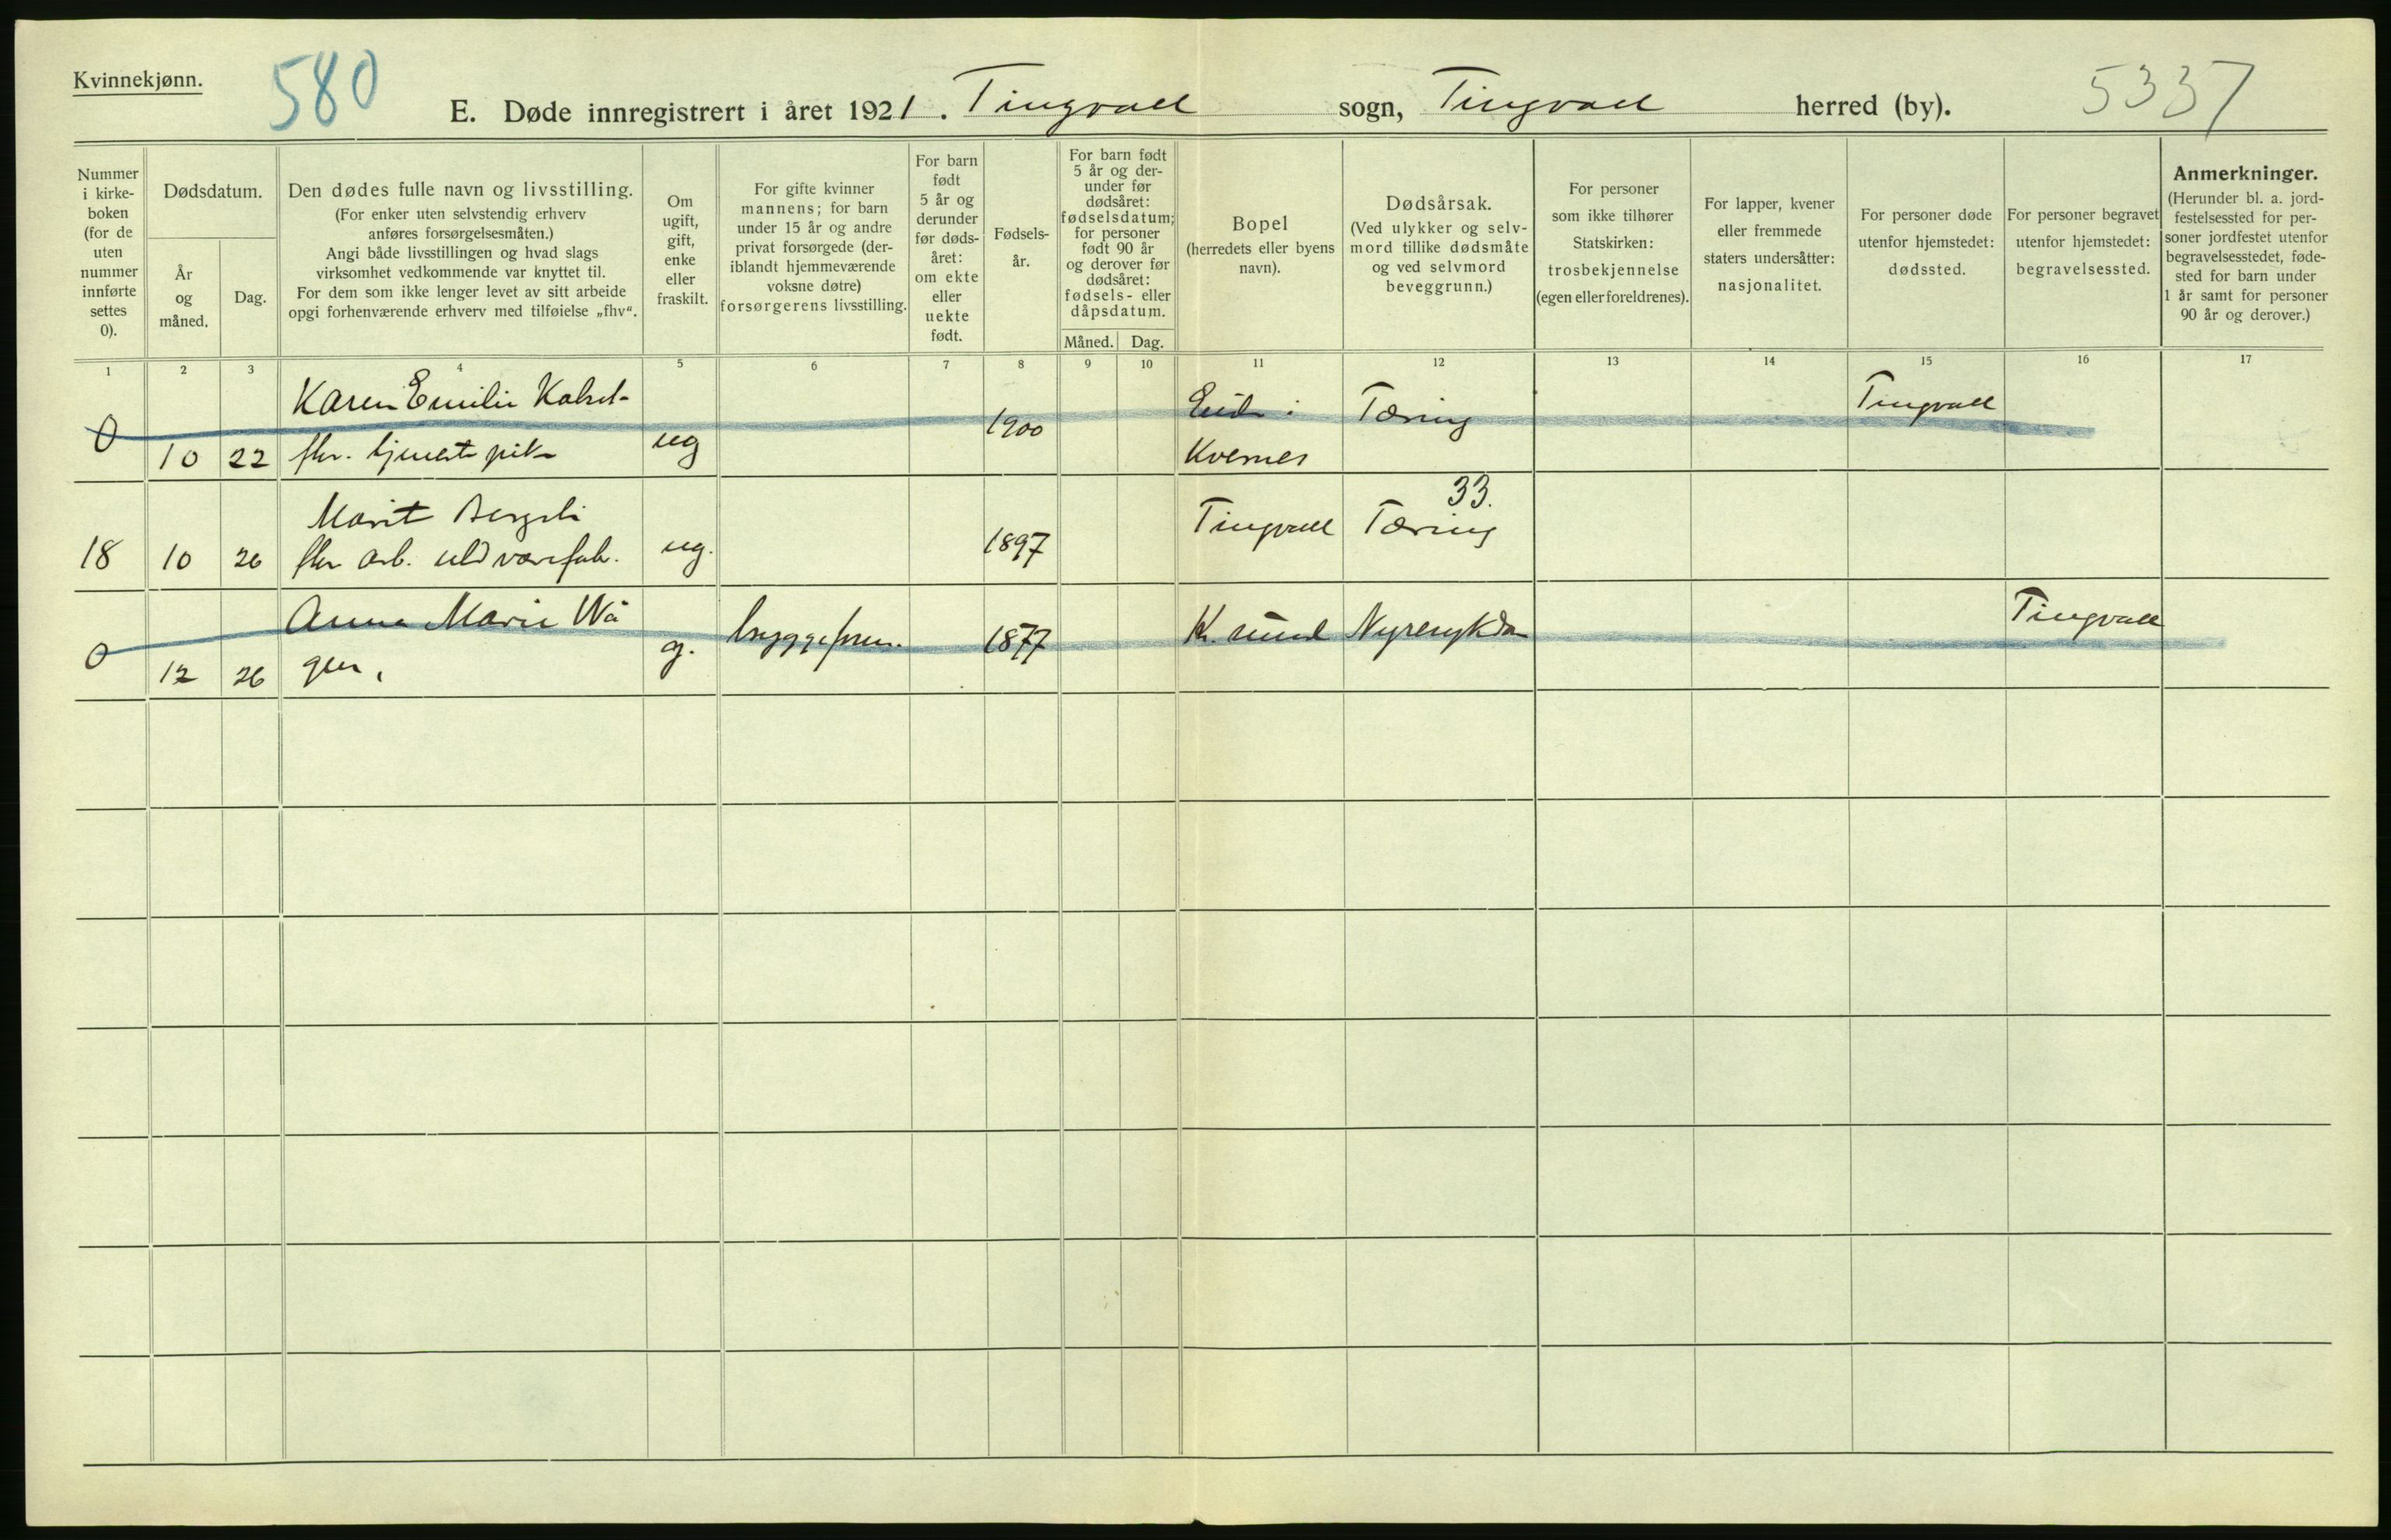 Kvinnekjønn.
580
E. Døde innregistrert i året 1921. Tingvoll sogn, Tingvoll herred (by).
5337
Nummer
i kirke-
boken
(for de
uten
nummer
innførte
settes
0).
Dødsdatum.
År
og
måned.
Dag.
Den dødes fulle navn og livsstilling.
(For enker uten selvstendig erhverv
anføres forsørgelsesmåten.)
Angi både livsstillingen og hvad slags
virksomhet vedkommende var knyttet til.
For dem som ikke lenger levet av sitt arbeide
opgi forhenværende erhverv med tilføielse „fhv“.
Om
ugift,
gift,
enke
eller
fraskilt.
For gifte kvinner
mannens; for barn
under 15 år og andre
privat forsørgede (der-
iblandt hjemmeværende
voksne døtre)
forsørgerens livsstilling.
For barn
født
5 år og
derunder
før døds-
året:
om ekte
eller
uekte
født.
Fødsels-
år.
For barn født
5 år og der-
under før
dødsåret:
fødselsdatum;
for personer
født 90 år
og derover før
dødsåret:
fødsels- eller
dåpsdatum.
Måned. Dag.
Bopel
(herredets eller byens
navn).
Dødsårsak.
(Ved ulykker og selv-
mord tillike dødsmåte
og ved selvmord
beveggrunn.)
For personer
som ikke tilhører
Statskirken:
trosbekjennelse
(egen eller foreldrenes).
For lapper, kvener
eller fremmede
staters undersåtter:
nasjonalitet.
For personer døde
utenfor hjemstedet:
dødssted.
For personer begravet
utenfor hjemstedet:
begravelsessted.
Anmerkninger.
(Herunder bl. a. jord-
festelsessted for per-
soner jordfestet utenfor
begravelsesstedet, føde-
sted for barn under
1 år samt for personer
90 år og derover.)
1 2 3 4 5 6 7 8 9 10 11 12 13 14 15 16 17
Karen Emilie
0 10 22 fhv. tjenestepike ug 1900 Eide i Tæring Tingvoll
Kvernes
33.
Marit Bergsli
18 10 26 fhv arb. uldvarefab. ug. 1897 Tingvoll Tæring
Anna Marie Wå
0 12 26 gen, g. bryggeform. 1877 Kr.sund Nyresykdom Tingvoll